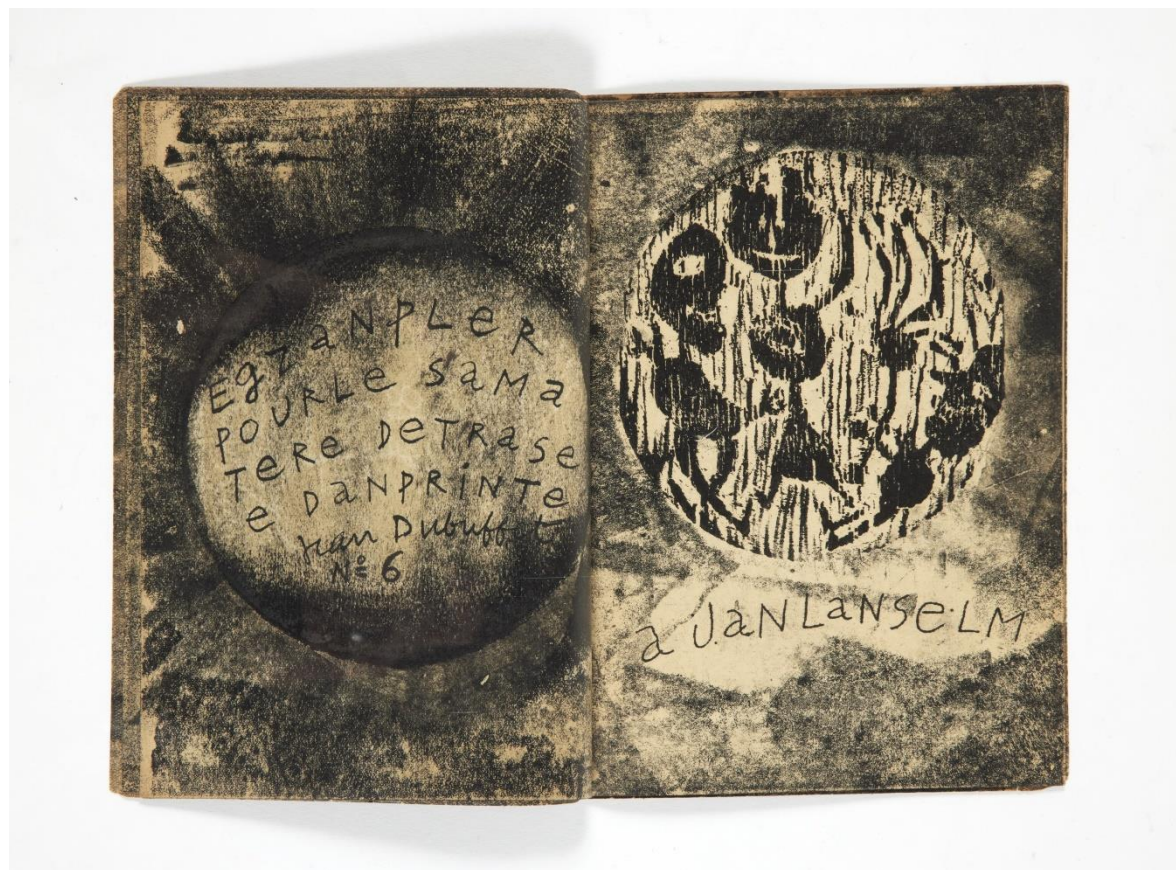 EgzaNPLeR
POURLe SaMa
TeRe DeTRaSe
e DaNPRiNTe
Jean Dubuffet
Nº 6
a JaNLaNSeLM